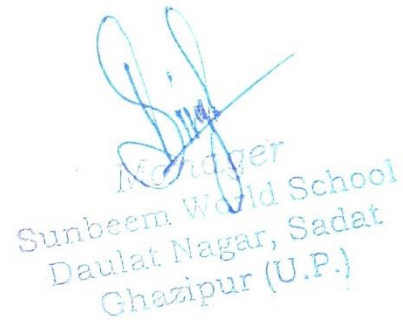 Manager
Sunbeem World School
Daulat Nagar, Sadat
Ghazipur (U.P.)